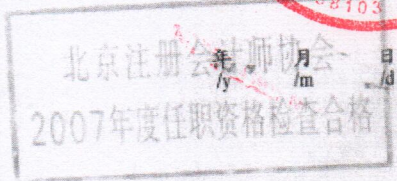 08103
北京注册会计师协会
年 月 日
/y /m /d
2007年度任职资格检查合格